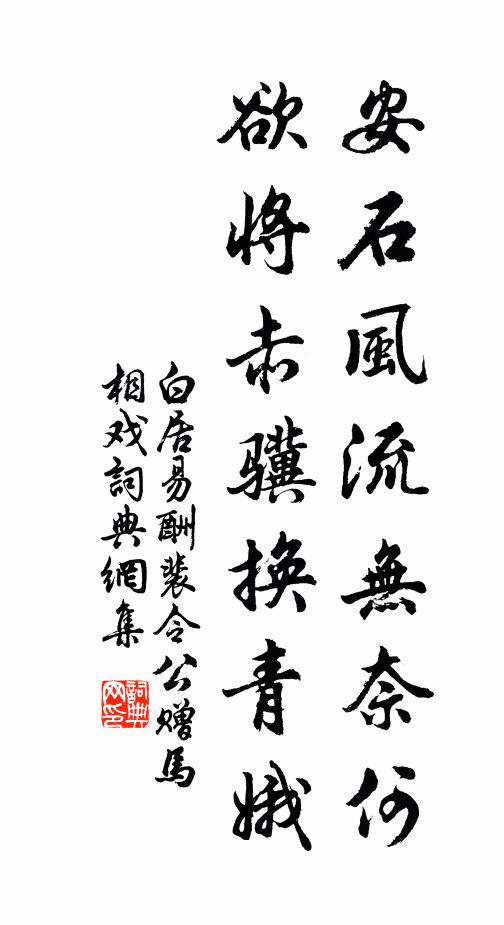 安石風流無奈何
欲将赤驥換青娥
白居易酬裴令公赠馬
相戏詞典網集
詞典
网印